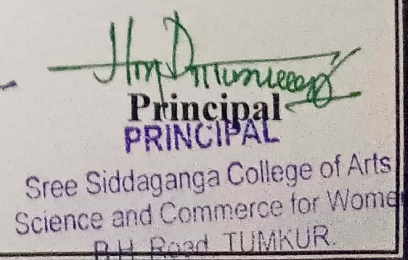 Principal
PRINCIPAL
Sree Siddaganga College of Arts
Science and Commerce for Wome
B.H. Road, TUMKUR.